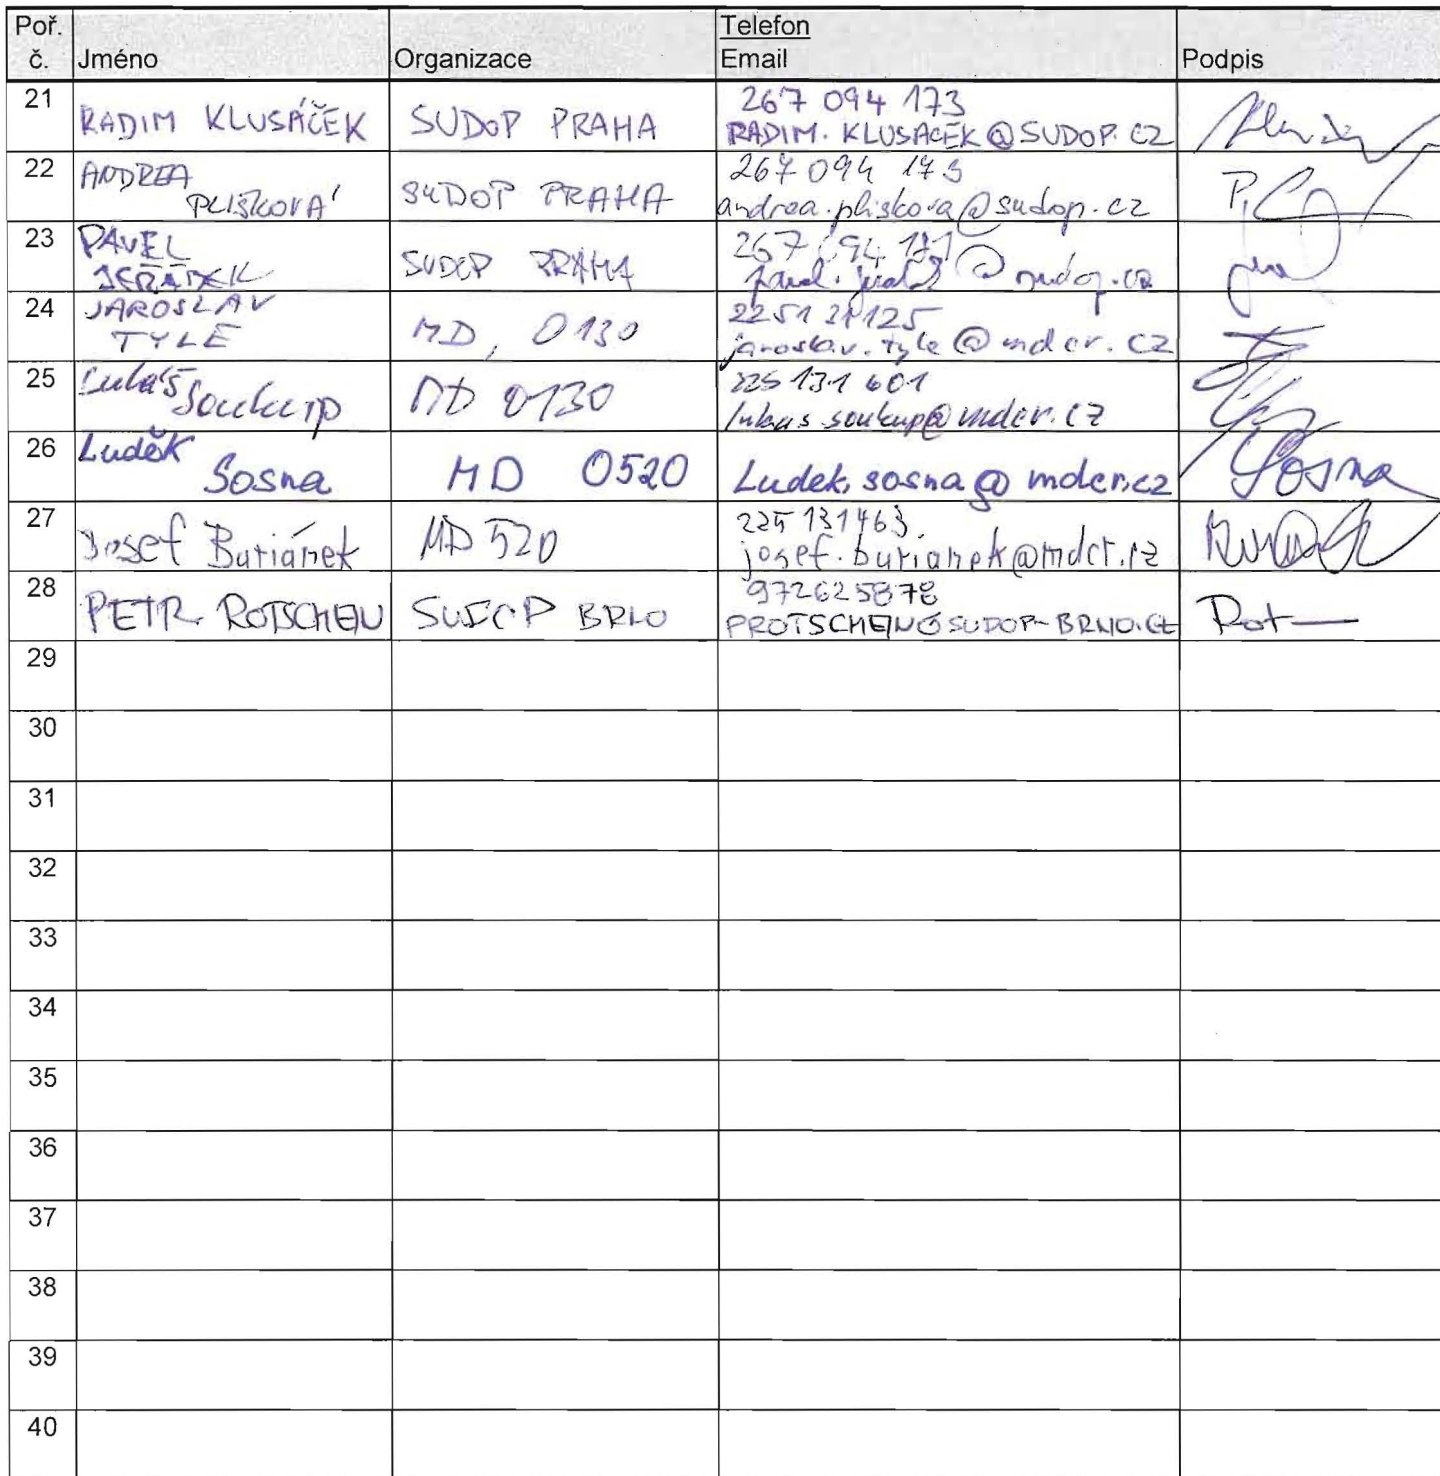 Poř. č. Jméno Organizace Telefon Email Podpis
21 RADIM KLUSÁČEK SUDOP PRAHA 267 094 173
RADIM.KLUSACEK@SUDOP.CZ
22 ANDREA PLIŠKOVÁ SUDOP PRAHA 267 094 173
andrea.pliskova@sudop.cz
23 PAVEL SUDOP PRAHA
24 JAROSLAV TYLE MD, 0130
jaroslav.tyle@mdcr.cz
25 Lukáš Soukup MD 0130 225 131 601
lukas.soukup@mdcr.cz
26 Luděk Sosna MD 0520 Ludek.sosna@mdcr.cz Sosna
27 Josef Buriánek MD 520 225 131463
josef.burianek@mdcr.cz
28 PETR ROTSCHEIN SUDOP BRNO 972625878
PROTSCHEIN@SUDOP-BRNO.CZ
29
30
31
32
33
34
35
36
37
38
39
40